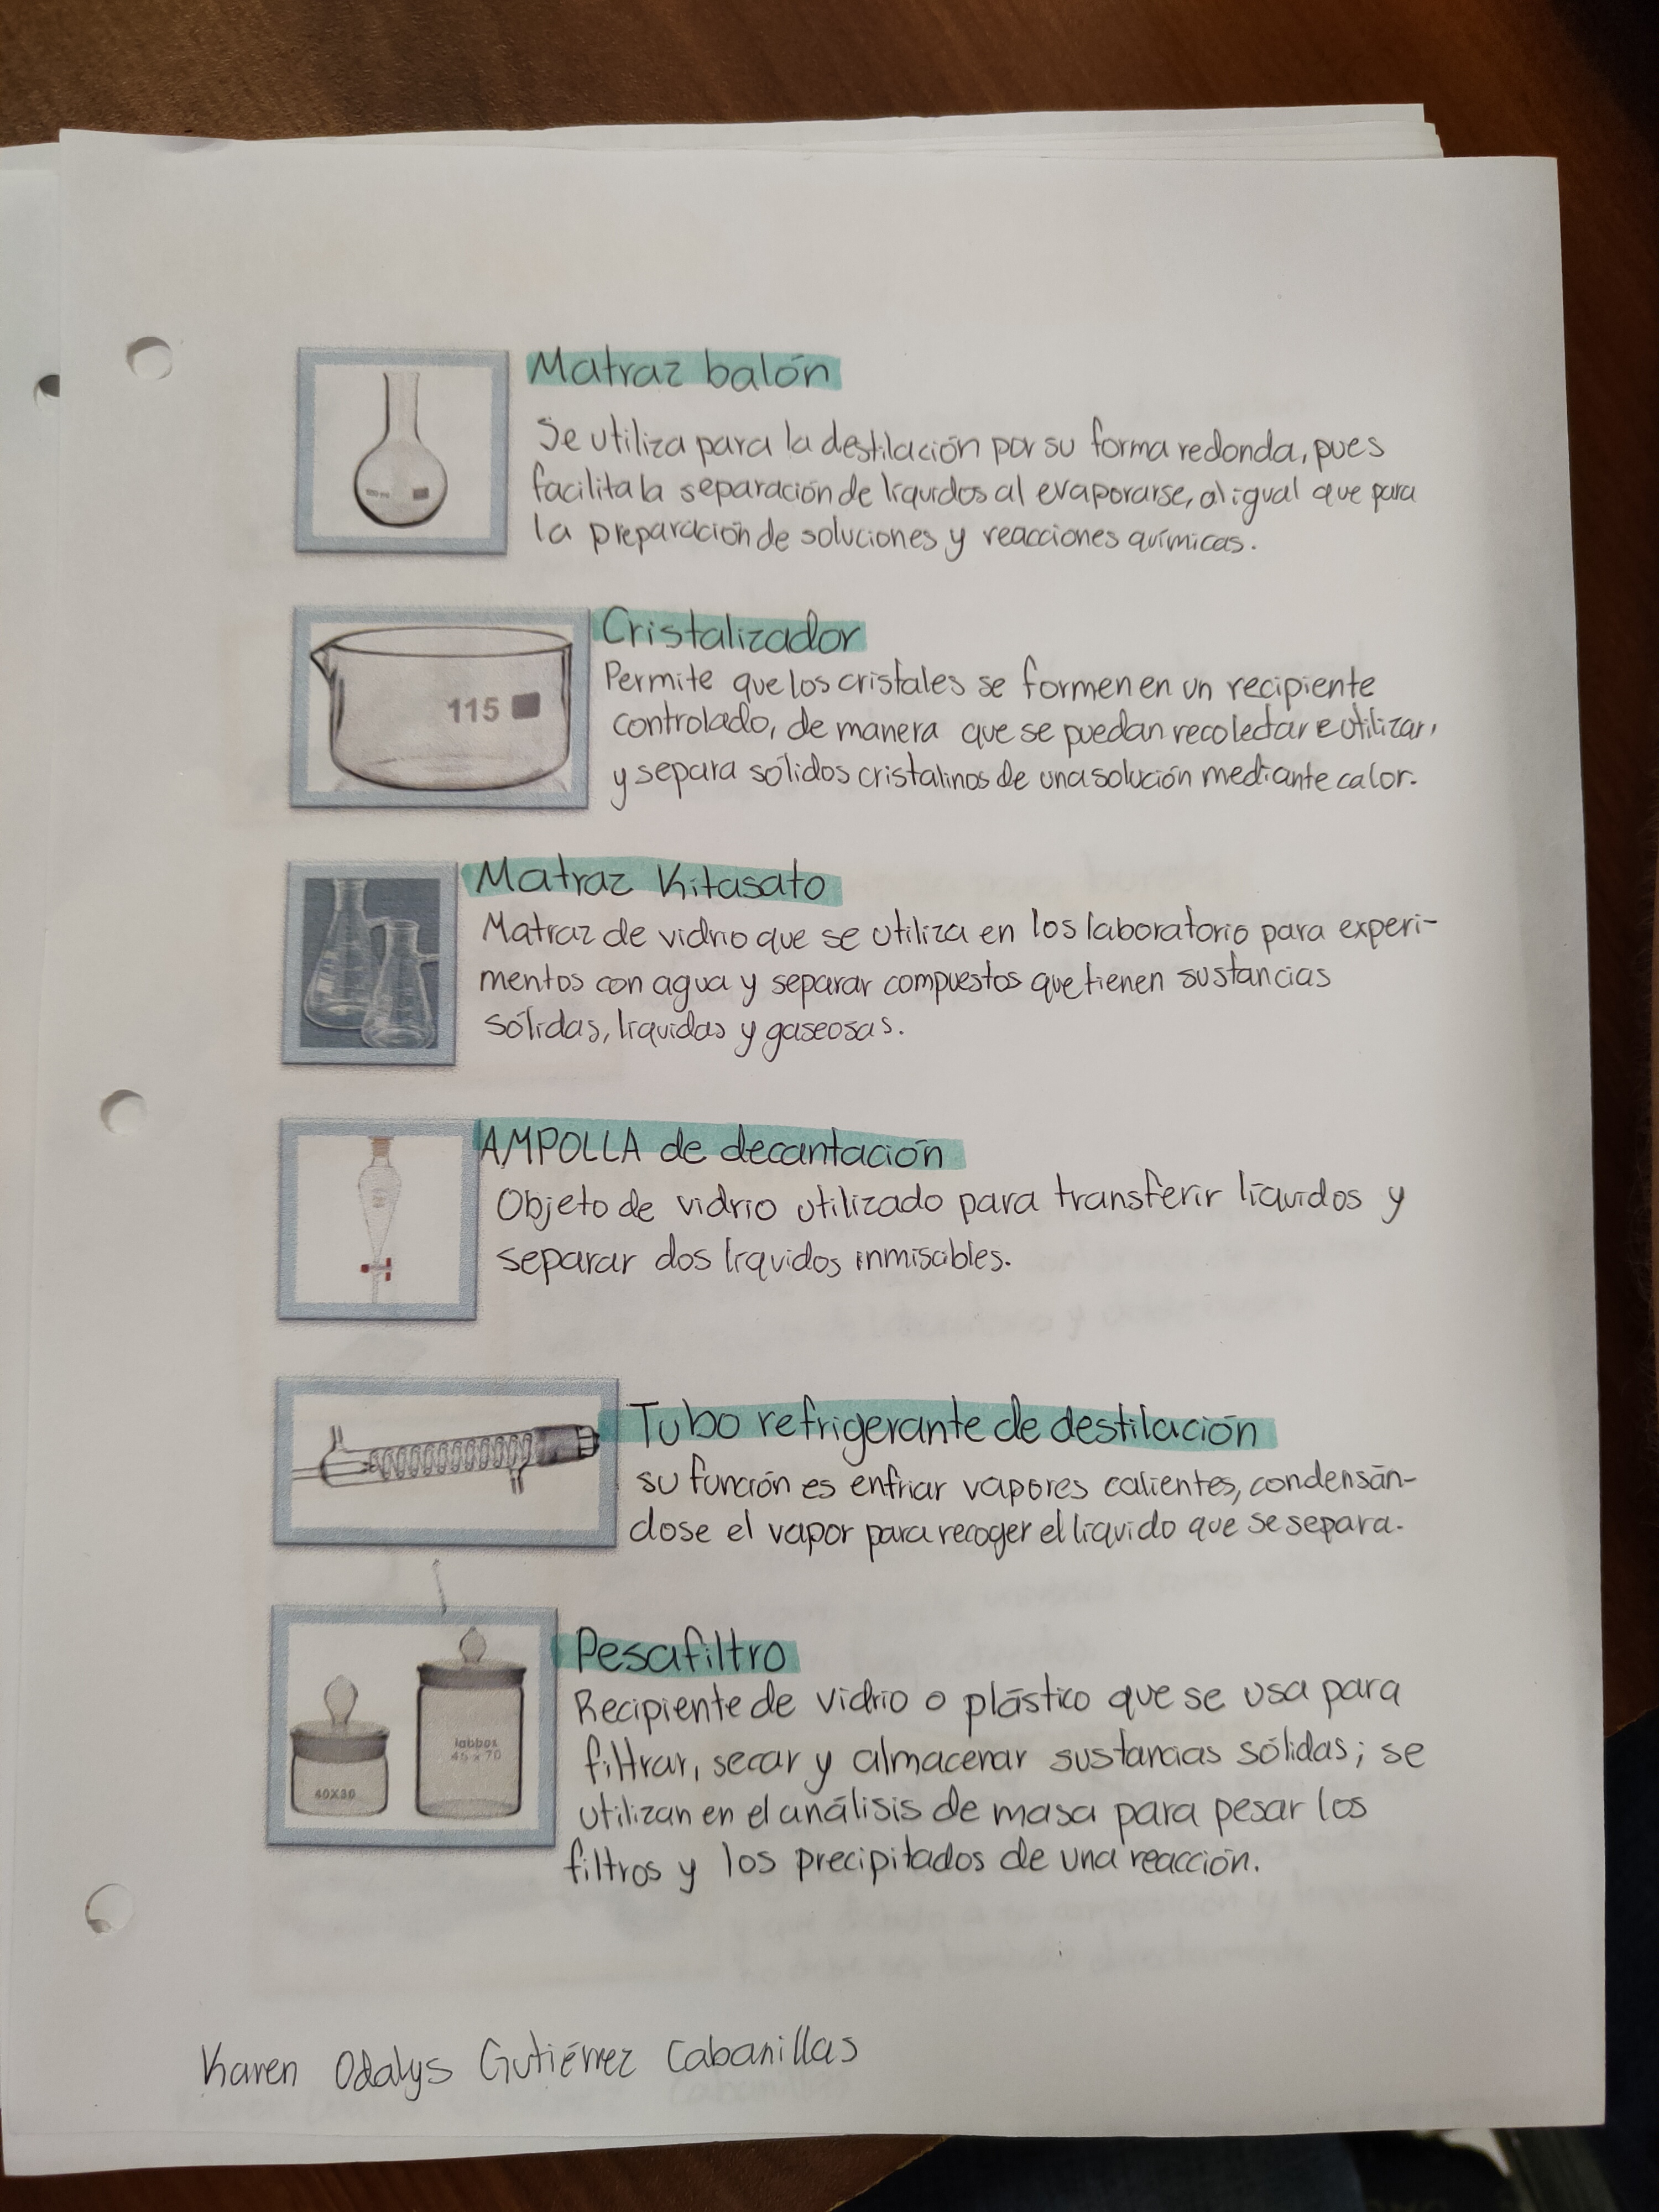 Matraz balón
Se utiliza para la destilación por su forma redonda, pues
facilita la separación de líquidos al evaporarse, al igual que para
la preparación de soluciones y reacciones químicas.
Cristalizador
115
Permite que los cristales se formen en un recipiente
controlado, de manera que se puedan recolectar e utilizar,
y separa sólidos cristalinos de una solución mediante calor.
Matraz Kitasato
Matraz de vidrio que se utiliza en los laboratorio para experi-
mentos con agua y separar compuestos que tienen sustancias
sólidas, líquidas y gaseosas.
AMPOLLA de decantación
Objeto de vidrio utilizado para transferir líquidos y
separar dos líquidos inmiscibles.
Tubo refrigerante de destilación
su función es enfriar vapores calientes, condensán-
dose el vapor para recoger el líquido que se separa.
Pesafiltro
labbox
45 x 70
40X30
Recipiente de vidrio o plástico que se usa para
filtrar, secar y almacenar sustancias sólidas; se
utilizan en el análisis de masa para pesar los
filtros y los precipitados de una reacción.
Karen Odalys Gutiérrez Cabanillas